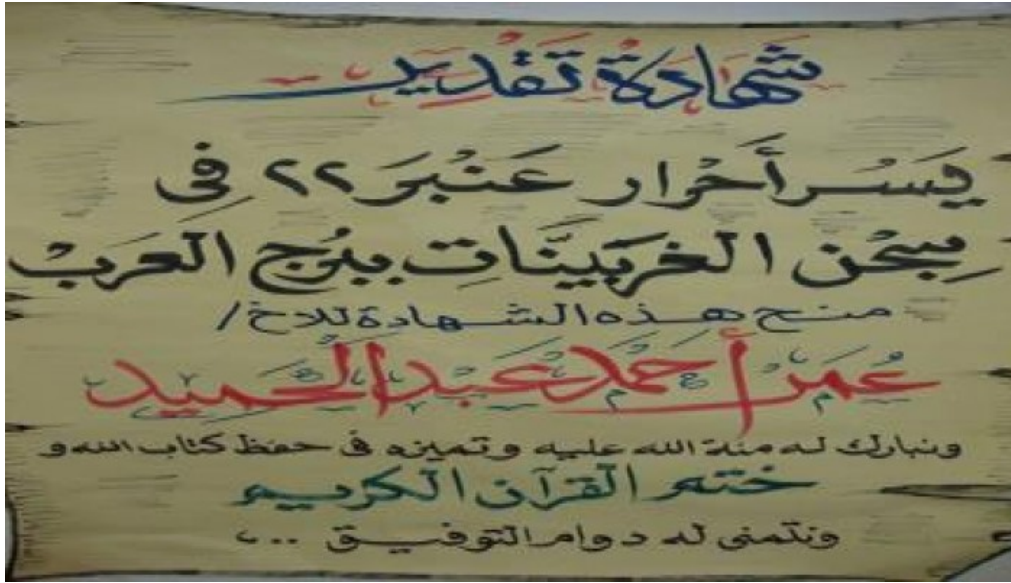 شهادة تقدير
يَسُر أحْرار عَنْبَرَ ٢٢ فِى
سِجْن الغَرَبِينَّاتِ ببُرج العَرَبْ
منح هذه الشهادة للاخ /
عُمَر أحمَد عَبْد الحَميد
ونبارك له منة الله عليه وتميزه فى حفظ كتاب الله و
ختم القرآن الكريم
ونتمنى له دوام التوفيق ..،